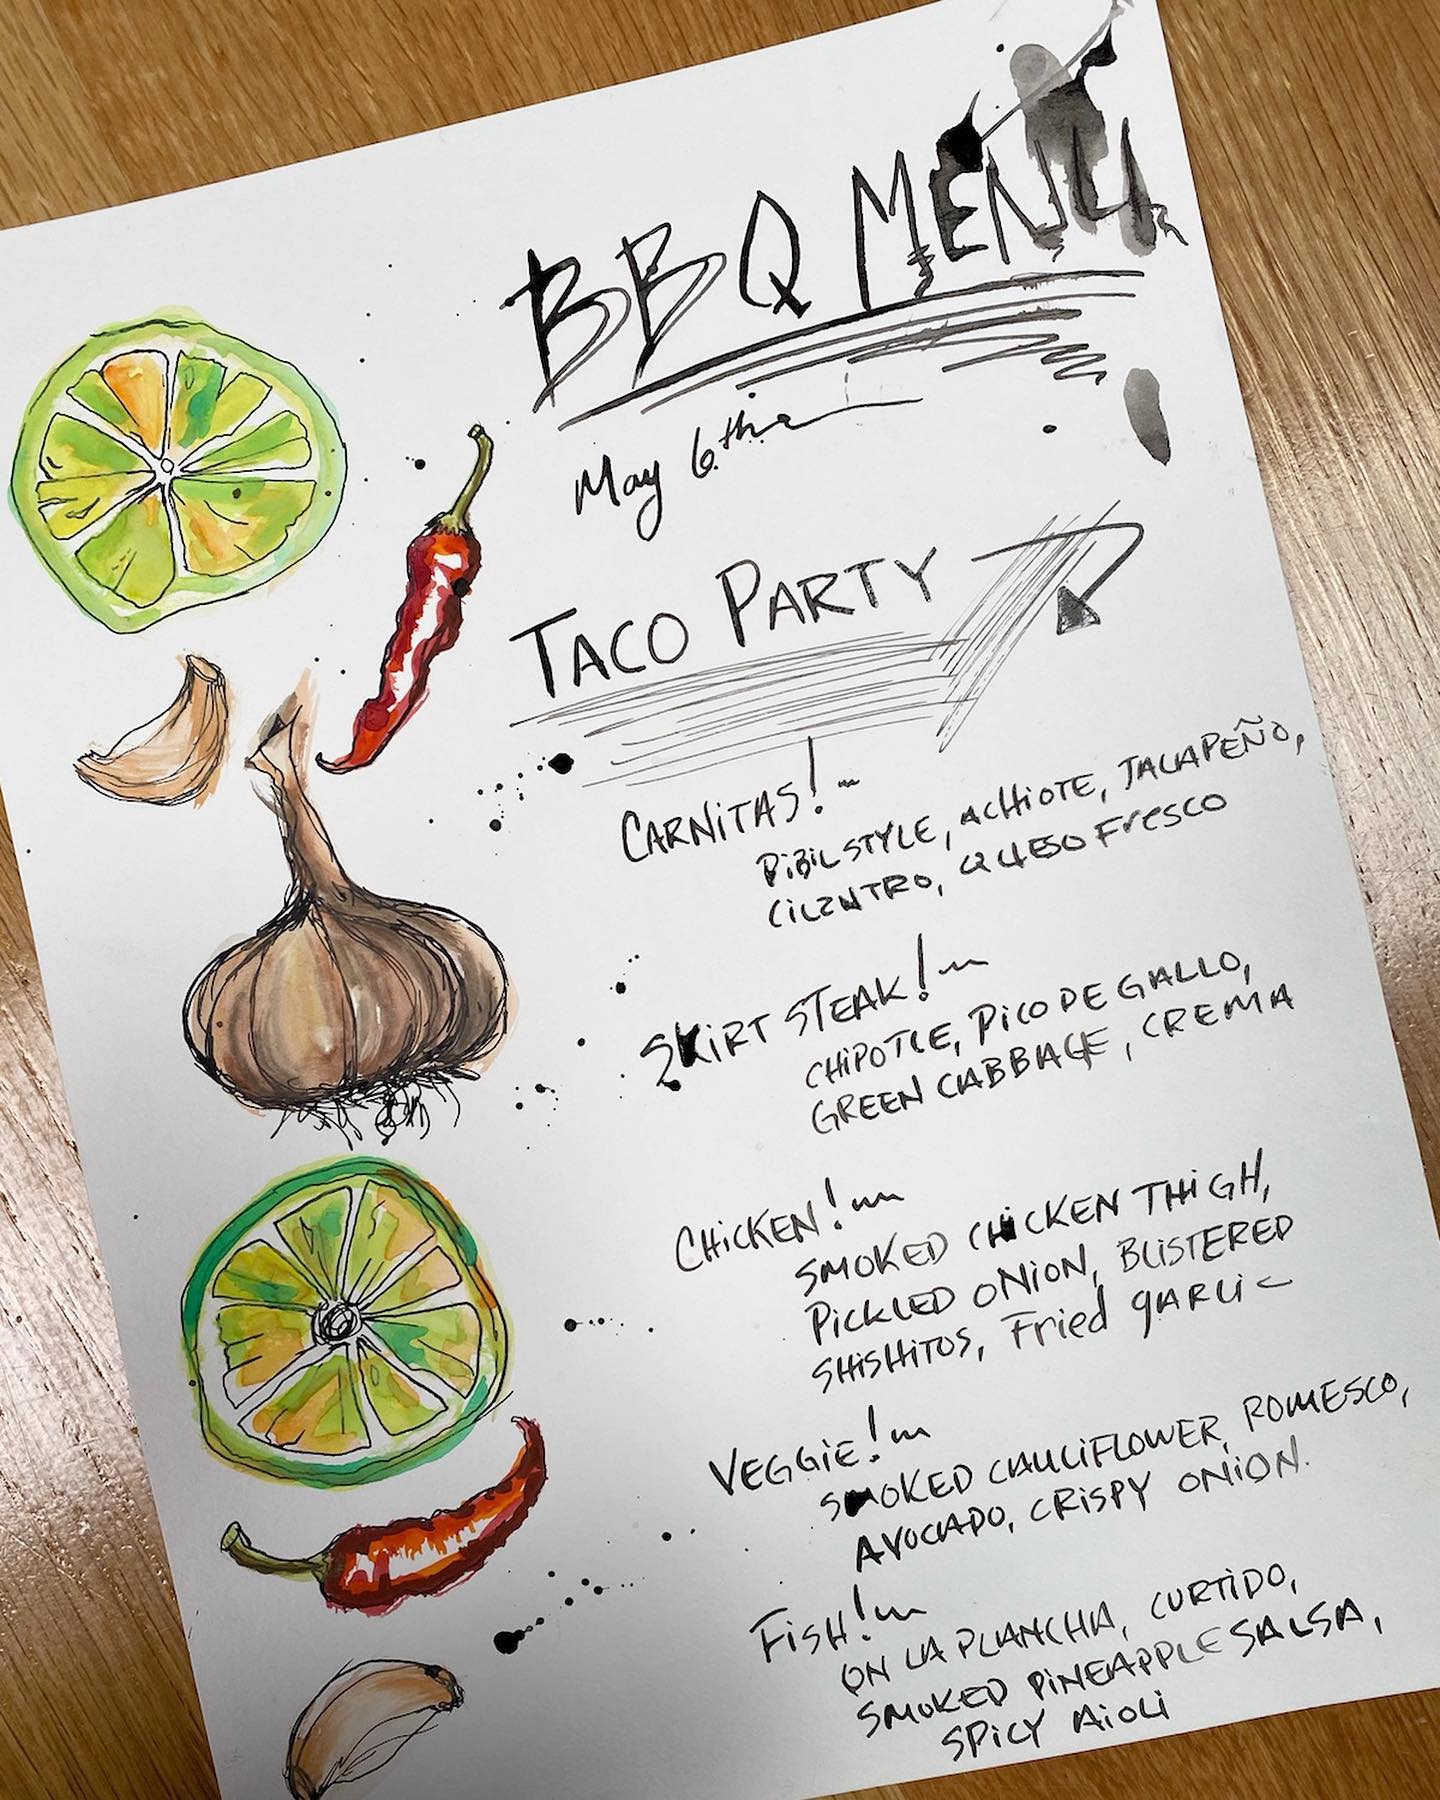 BBQ MENU
May 6th
TACO PARTY
CARNITAS!
PIBIL STYLE, ACHIOTE, JALAPEÑO,
CILANTRO, QUESO FRESCO
SKIRT STEAK!
CHIPOTLE, PICO DE GALLO,
GREEN CABBAGE, CREMA
CHICKEN!
SMOKED CHICKEN THIGH,
PICKLED ONION, BLISTERED
SHISHITOS, Fried GARLIC
VEGGIE!
SMOKED CAULIFLOWER, ROMESCO,
AVOCADO, CRISPY ONION.
FISH!
ON LA PLANCHA, CURTIDO,
SMOKED PINEAPPLE SALSA,
SPICY AIOLI